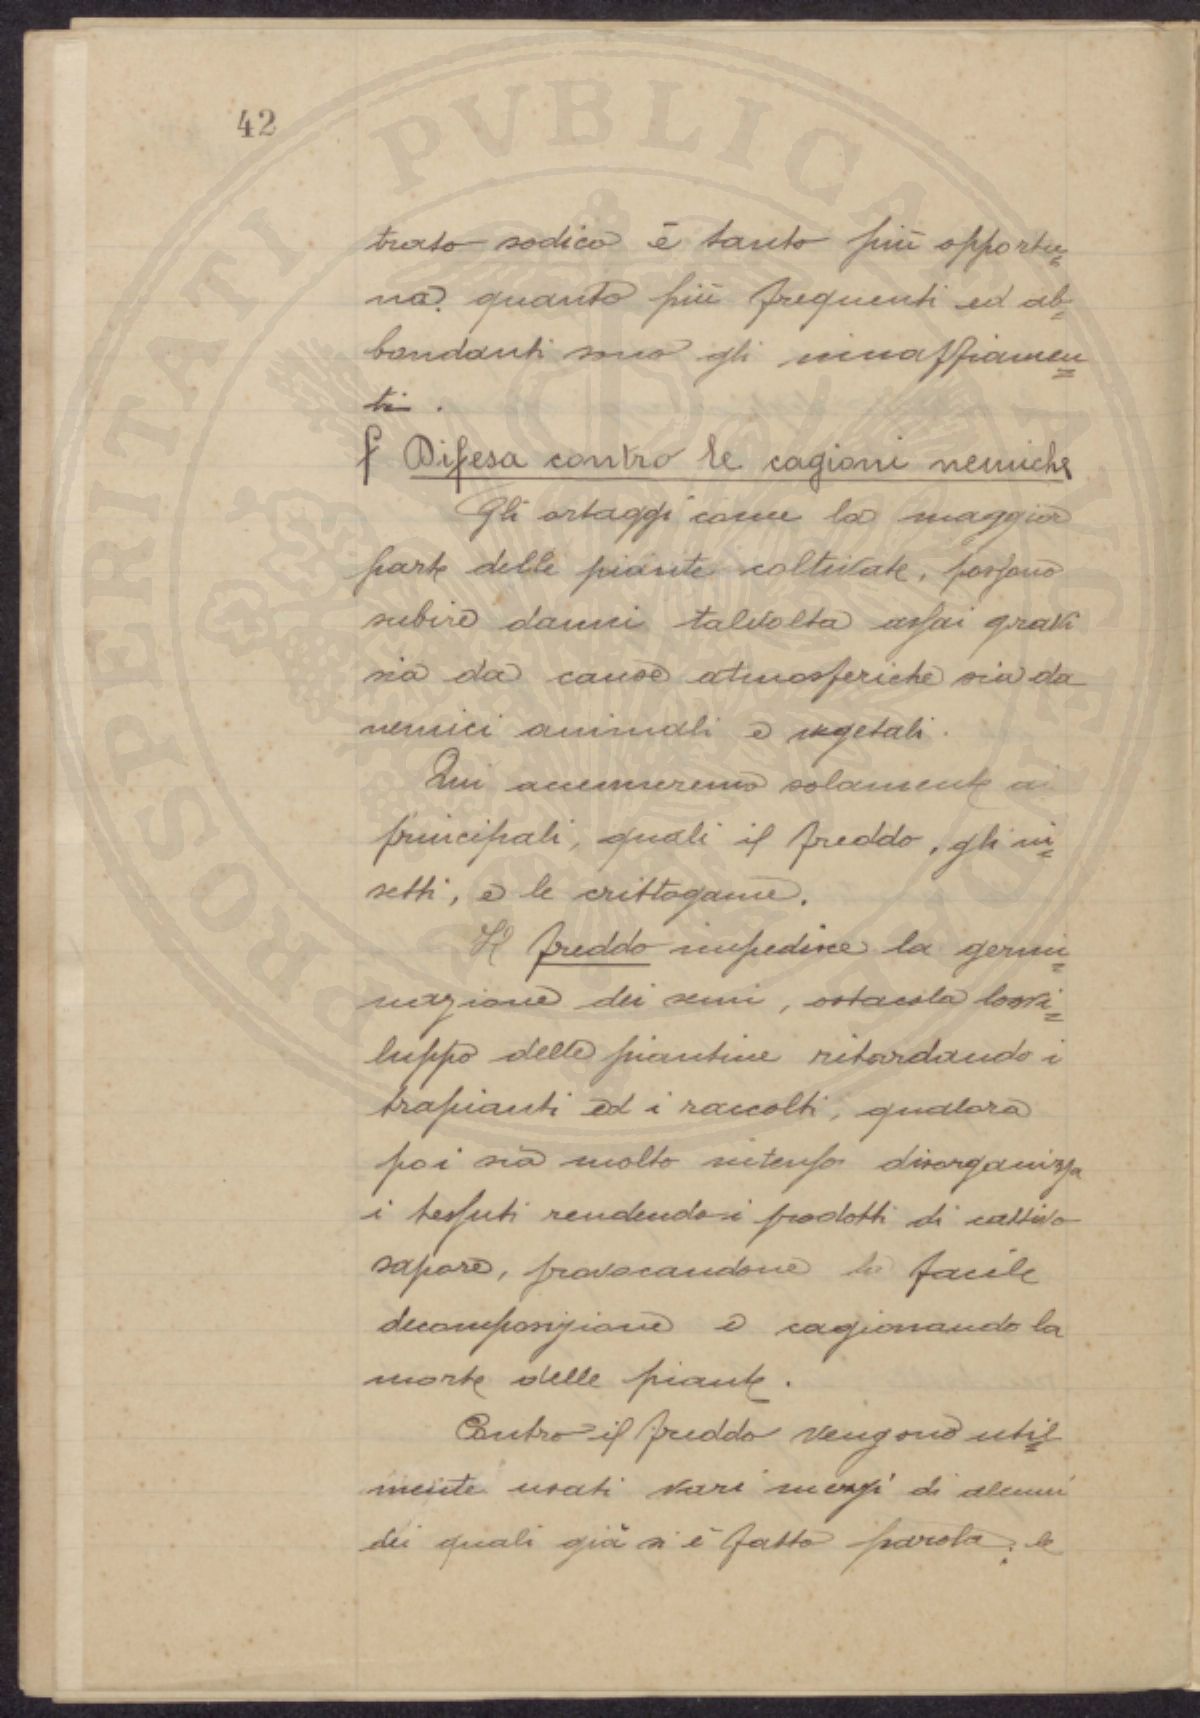 42
trato sodico è tanto più opportu=
na. quanto più frequenti ed ab=
bondanti sono gli innaffiamen=
ti.
f Difesa contro le cagioni nemiche
Gli ortaggi come la maggior
parte delle piante coltivate, possono
subire danni talvolta assai gravi
sia da cause atmosferiche sia da
nemici animali e vegetali.
Qui accenneremo solamente ai
principali, quali il freddo, gli in=
setti, e le crittogame.
Il freddo impedisce la germi=
nazione dei semi, ostacola lo svi=
luppo delle piantine ritardando i
trapianti ed i raccolti, qualora
poi sia molto intenso disorganizza
i tessuti rendendo i prodotti di cattivo
sapore, provocandone la facile
decomposizione e cagionando la
morte delle piante.
Contro il freddo vengono util=
mente usati vari mezzi di alcuni
dei quali già si è fatto parola: le
PROSPERITATI PVBLICAE